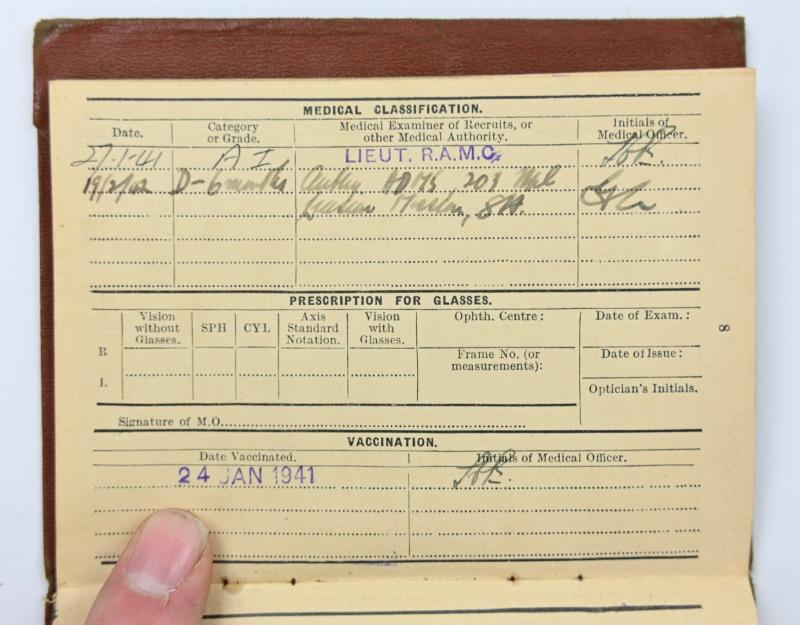 MEDICAL CLASSIFICATION.
Date.
Category or Grade.
Medical Examiner of Recruits, or other Medical Authority.
Initials of Medical Officer.
27-1-41 A I LIEUT. R.A.M.C.
19/2/42 D - 6 months 203
Mission,
PRESCRIPTION FOR GLASSES.
Vision without Glasses.
SPH
CYL
Axis Standard Notation.
Vision with Glasses.
Ophth. Centre :
Date of Exam. :
R
Frame No. (or measurements):
Date of Issue :
L
Optician's Initials.
Signature of M.O.
8
VACCINATION.
Date Vaccinated.
Initials of Medical Officer.
24 JAN 1941